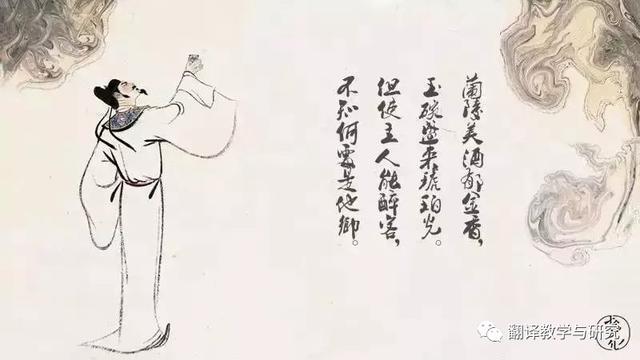 蘭陵美酒郁金香，
玉碗盛来琥珀光。
但使主人能醉客，
不知何處是他鄉。
翻译教学与研究